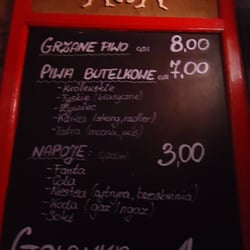 GRZANE PIWO 0,5l 8,00
PIWA BUTELKOWE od 7,00
- Królewskie
- Tyskie (klasyczne)
- Żywiec
- Warka (strong, radler)
- Tatra (mocna, pils)
NAPOJE: 0,200ml 3,00
- Fanta
- Cola
- Nestea (cytryna, brzoskwinia)
- Woda (gaz/ngaz)
- Soki